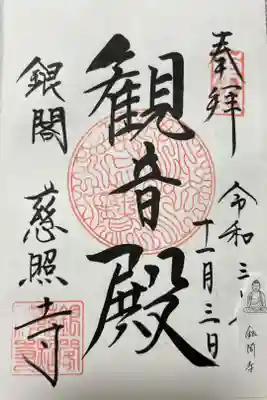 奉拝
令和三
十一月三日
観音殿
銀閣
慈照寺
銀閣寺